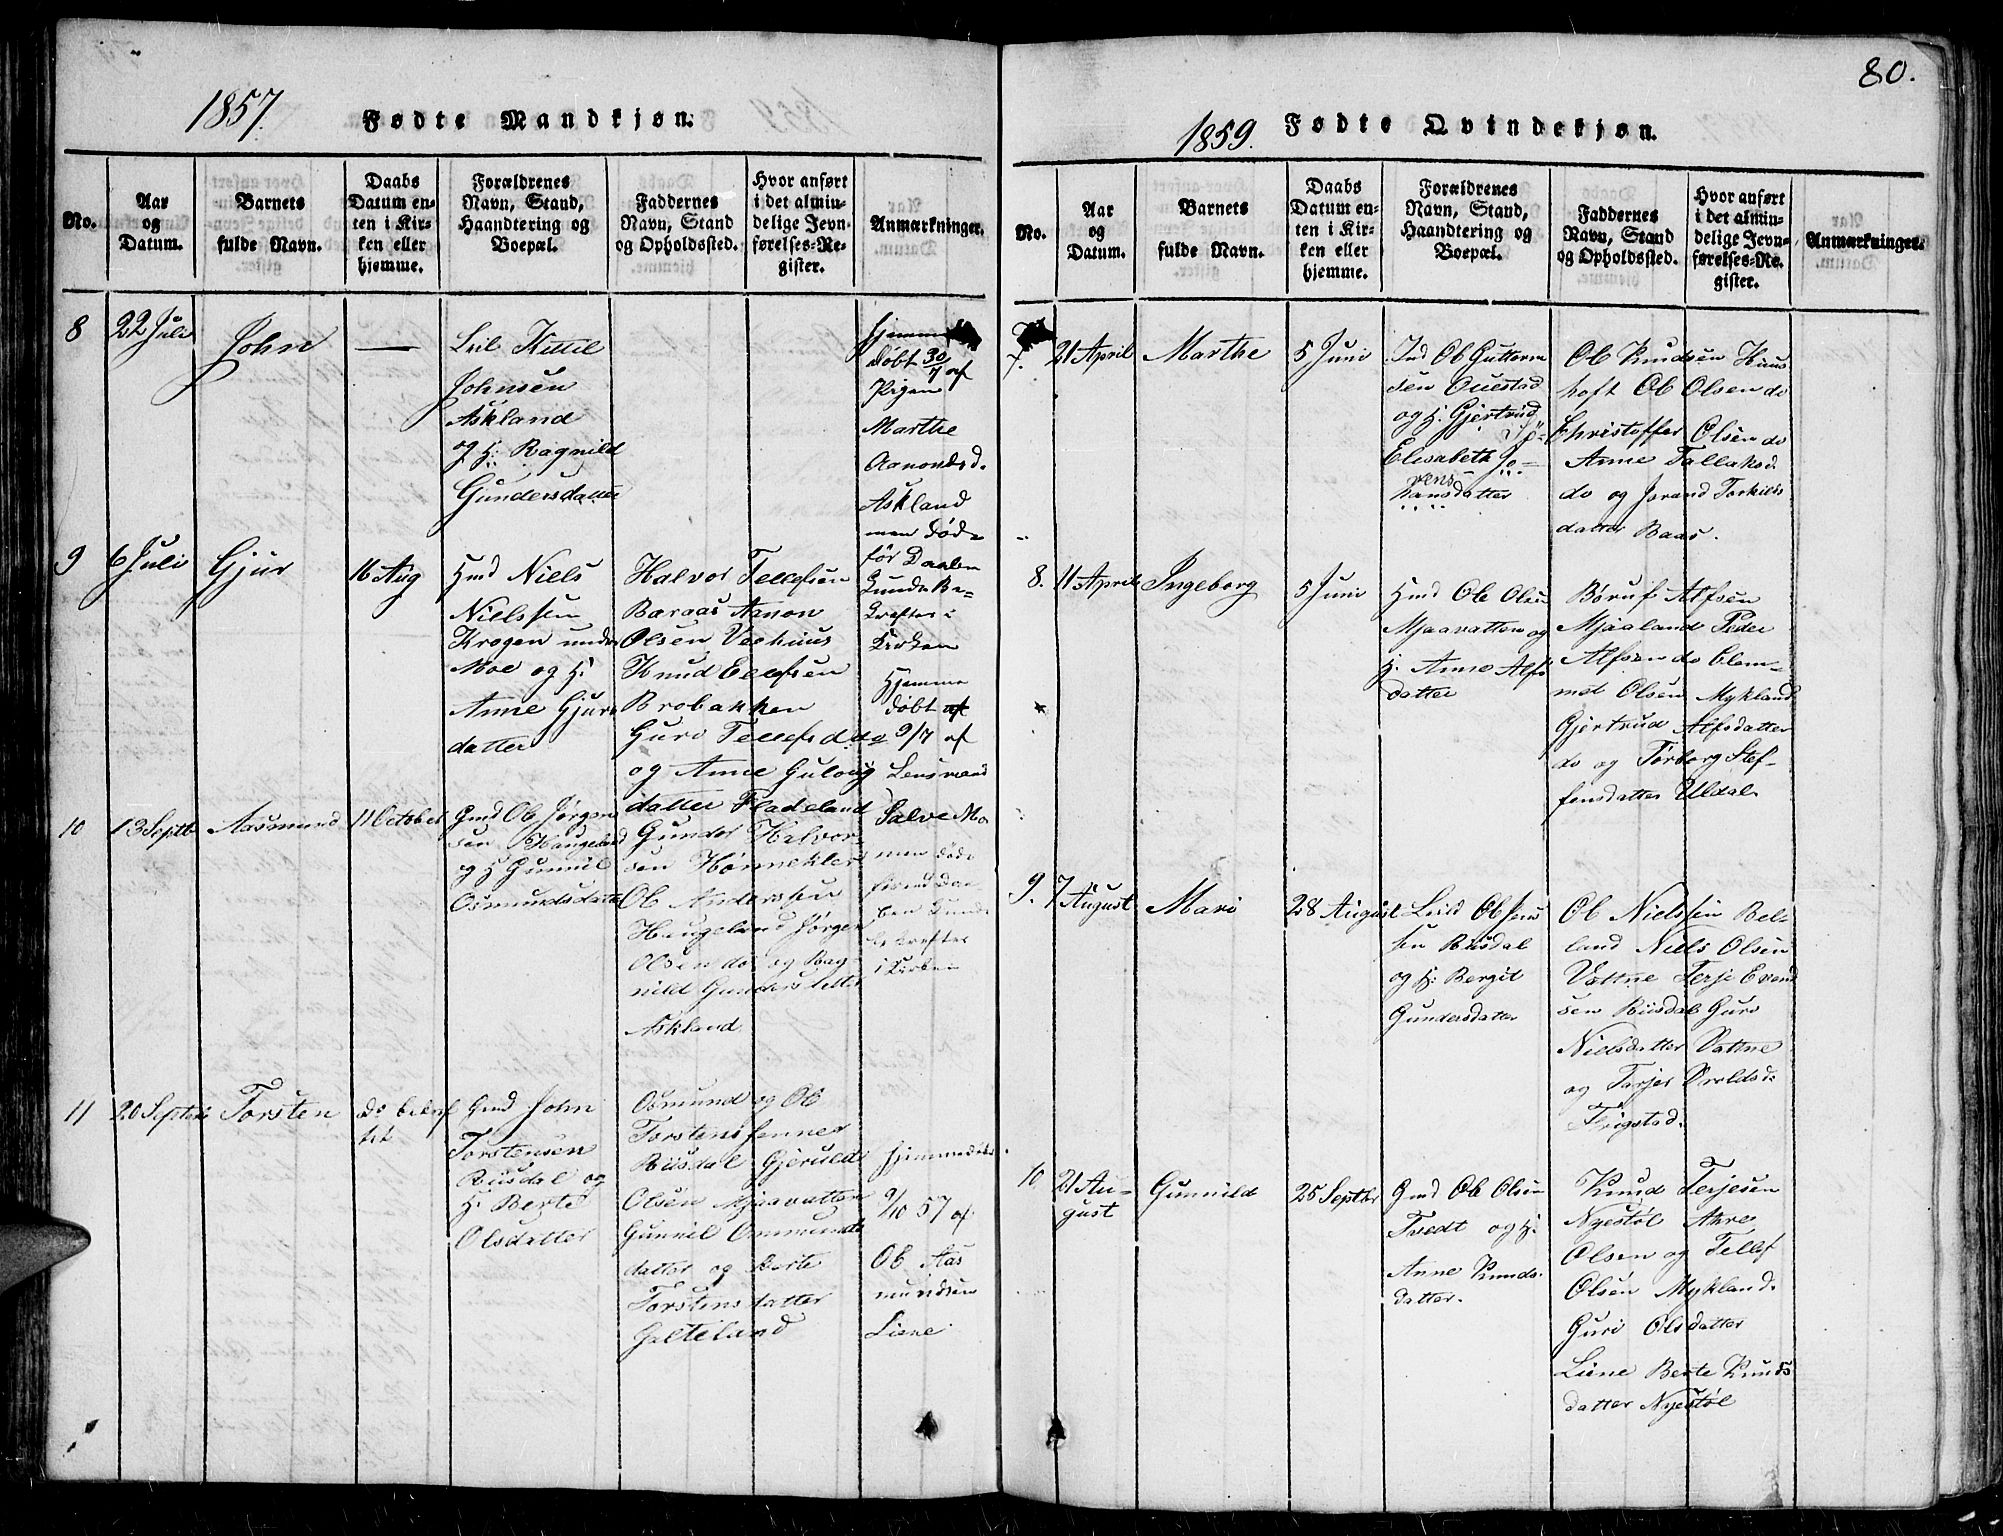 80.
1857.
Fødte Mandkjøn.
No.
Aar
og
Datum.
Barnets
fulde Navn.
Daabs
Datum en-
ten i Kir-
ken eller
hjemme.
Forældrenes
Navn, Stand,
Haandtering og
Boepæl.
Faddernes
Navn, Stand
og Opholdssted.
Hvor anført
i det almin-
delige Jevn-
førelses-Re-
gister.
Anmærkninger.
8
22 Juli
John
—
Kittil
Johnsen
Askland
og H: Ragnild
Gundersdatter
døbt 30/7 af
Pigen
Marthe
Aanondsd.
Askland
men døde
før Daaben
Kunde Be-
kræftes i
Kirken
9
6 Juli
Gjur
16 Aug
Hmd Niels
Nielssen
Krogen under
Moe og H:
Anne Gjurs
datter
Halvor Tellefsen
Baraas Aanon
Olsen Veehuus
Knud Eelefsen
Brobakken
Guro Tellefsd do
og Anne Gulovs
datter Fladeland
Hjemme
døbt
9/7 af
Lensmand
Salve Mo
men døde
førend Daa-
ben Kunde
bekræftes
i Kirken
10
13 Septb
Aasmund
11 October
Gmd Ole Jørgen
sen Haugeland
og H Gunnil
Osmundsdatter
Gunder Halvor-
sen
Ole Anderssen
Haugeland Jørgen
Olsen do og Rag-
nild Gundersdatter
Askland
11
20 Septbr
Torsten
do bekræf
tet
Gmd John
Torstensen
Risdal og
H: Berte
Olsdatter
Osmund og Ole
Torstenssenner
Risdal Gjeruld
Olsen Mjaavatten
Gunnil Ommunds
datter og Berte
Torstensdatter
Galteland
hjemmedøbt
9/10 57 af
Ole Aas
mundsen
Liene
1859.
Fødte Qvindekjøn.
No.
Aar
og
Datum.
Barnets
fulde Navn.
Daabs
Datum en-
ten i Kir-
ken eller
hjemme.
Forældrenes
Navn, Stand,
Haandtering og
Boepæl.
Faddernes
Navn, Stand
og Opholdssted.
Hvor anført
i det almin-
delige Jevn-
førelses-Re-
gister.
Anmærkninger.
7.
21 April
Marthe
5 Juni
Ind Ole Guttorm
sen Ouestad
og H. Gjertrud
Elisabeth Jo-
hansdatter
Ole Knudsen Haus
hoft Ole Olsen do
Christoffer Olsen do
Anne Tallaksd
do og Jorand Torkilds
datter Baas.
8.
11 April
Ingeborg
5 Juni
Hmd Ole Olsen
Mjaavatten og
H. Anne Alfs
datter
Børuf Alfsen
Mjaaland Peder
Alfsen do Clem-
met Olsen Mykland
Gjertrud Alfsdatter
do og Torborg Stef-
fensdatter Uldal.
9.
7 August
Mari
28 August
Leild Ole Jens
sen Risdal
og H: Bergit
Gundersdatter
Ole Nielssen Bel-
land Niels Olsen
Vattne Terje Evend
sen Risdal Guro
Nielsdatter Vattne
og Tarjer Oroldsd.
Frigstad.
10
21 Au-
gust
Gunnild
25 Septbr
Gmd Ole Olsen
Tvedt og H.
Anne Knuds.
datter.
Knud Terjesen
Nyestøl Aave
Olsen og Tellef
Olsen Mykland.
Guri Olsdatter
Liene Berte Knuds
datter Nyestøl